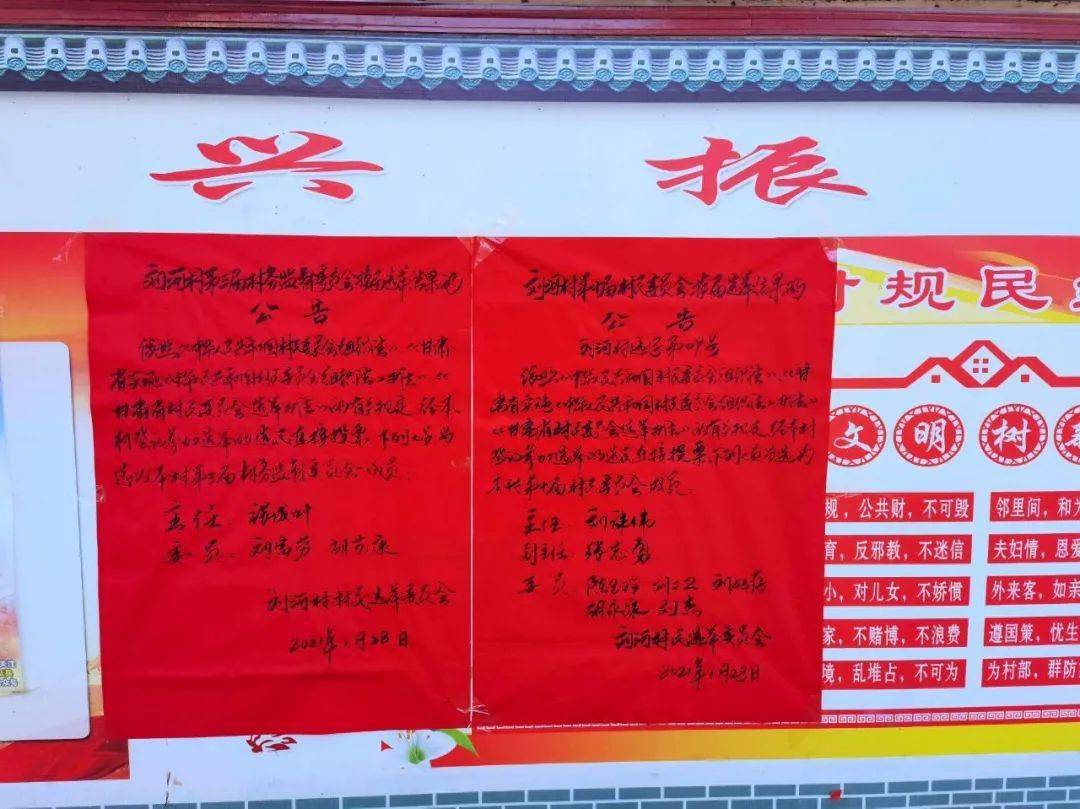 兴 振
刘河村第三届村务监督委员会换届选举结果的
公告
依照《中华人民共和国村民委员会组织法》《甘肃
省实施《中华人民共和国村民委员会组织法》办法》《
甘肃省村民委员会选举办法》的有关规定,经本
村登记参加选举的选民直接投票,下列人员当
选为本村第三届村务监督委员会成员:
主任:
委员:
刘河村村民选举委员会
2021年1月28日
刘河村第十届村民委员会换届选举结果的
公告
刘河村选字第 号
依照《中华人民共和国村民委员会组织法》、《甘
肃省实施《中华人民共和国村民委员会组织法》办法》
《甘肃省村民委员会选举办法》的有关规定,经本村
登记参加选举的选民直接投票,下列人员当选为
本村第十届村民委员会成员:
主任:刘 伟
副主任:张志勇
委员:陈 刘 卫 刘
胡永 刘
刘河村民选举委员会
2021年1月28日
规民
文明树
规,公共财,不可毁
育,反邪教,不迷信
小,对儿女,不娇惯
家,不赌博,不浪费
境,乱堆占,不可为
邻里间,和为
夫妇情,恩爱
外来客,如亲
遵国策,优生
为村部,群防